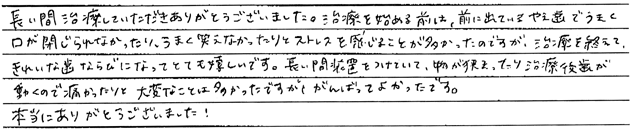 長い間治療していただきありがとうございました。治療を始める前は、前に出ているやえ歯でうまく
口が閉じられなかったり、うまく笑えなかったりとストレスを感じることが多かったのですが、治療を終えて、
きれいな歯ならびになってとても嬉しいです。長い間装置をつけていて、物が挟まったり治療後歯が
動くので痛かったりと大変なことは多かったですが、がんばってよかったです。
本当にありがとうございました！